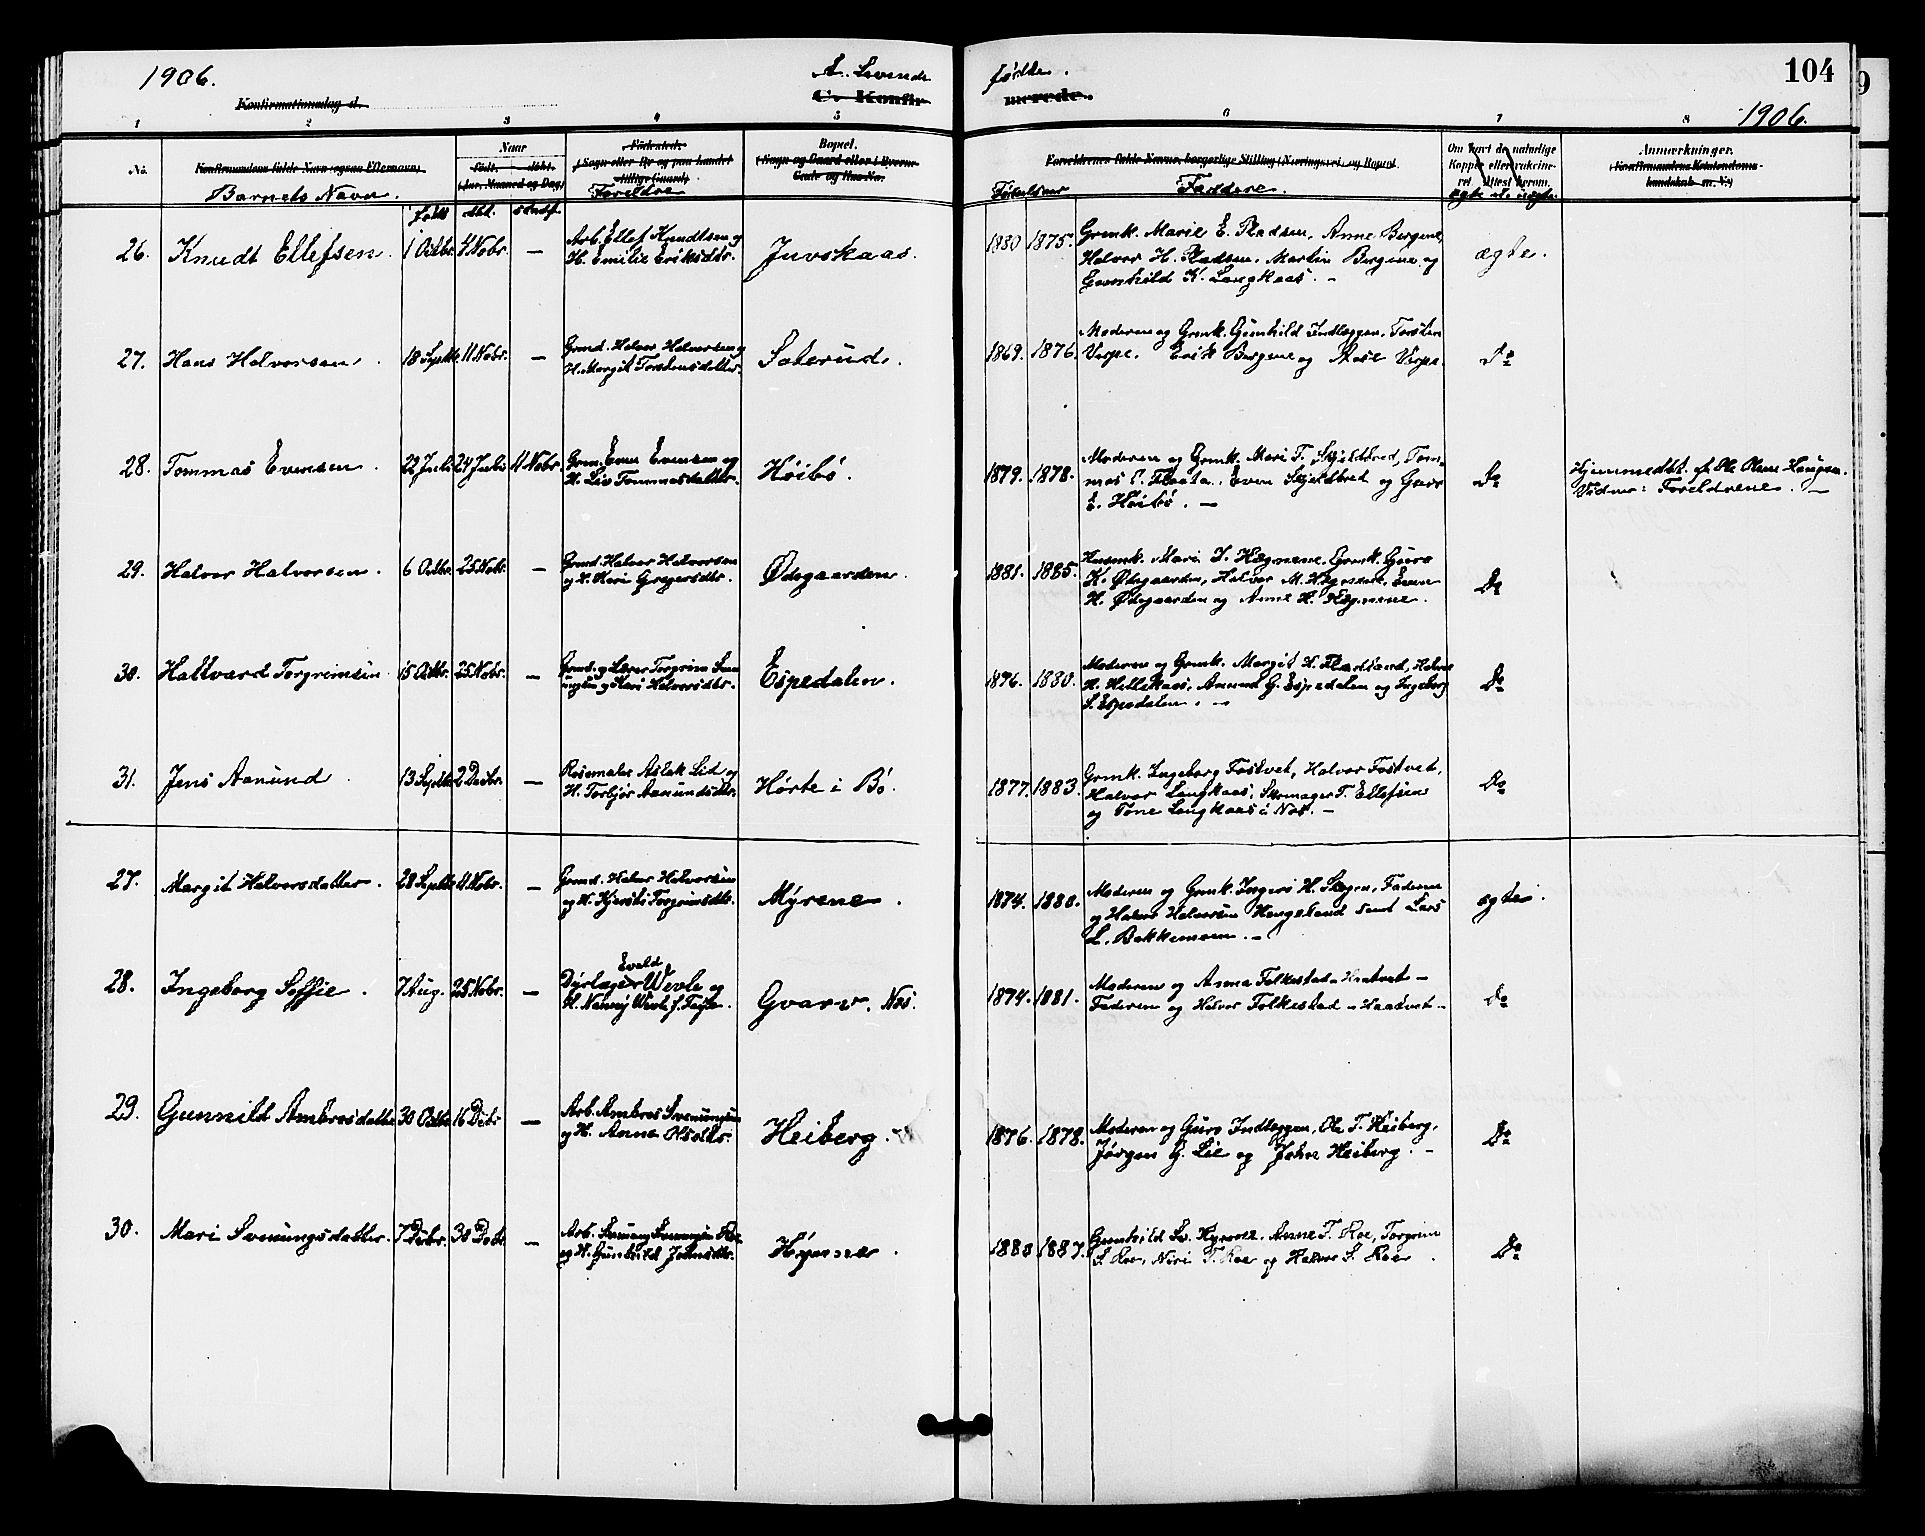 1906.
A. Levende
fødte.
104
Konfirmationsdag d.
C. Konfir-
merede.
1906.
1 2 3 4 5 6 7 8
No.
Konfirmandens fulde Navn (ogsaa Efternavn)
Barnets Navn
Naar
født. døbt.
(Aar, Maaned og Dag)
født dbt. stadf.
Fødested.
(Sogn eller By og paa Landet tillige Gaard)
Foreldre
Bopæl.
(Sogn og Gaard eller i Byerne Gade og Hus No.
Forældrenes fulde Navne, borgerlige Stilling (Næringsvei) og Bopæl.
Fødselsaar
Faddere.
Om havt de naturlige Kopper eller vakcineret. Attest herom.
ægte el. uægte.
Anmærkninger.
(Konfirmandens Kristendomskundskab m. V.)
26. Knudt Ellefsen 1 Octbr. 4 Nobr. —
Arb. Ellef Knudtsen og
H. Emilie Eriksdtr.
Juvskaas.
1880 1875.
Grmk. Marie E. Pladsen, Anne Bergene,
Halvor H. Pladsen, Martin Bergene og
Gunhild K. Langkaas. –
ægte.
27. Hans Halvorsen. 18 Septbr. 11 Nobr. —
Grmd. Halvor Halvorsen og
H. Margit Torstensdatter.
Saterud.
1869. 1876.
Moderen og Grmk. Gunhild Indlæggen, Torsten
Verpe, Erik Bergene og Aase Verpe.
Do
28. Tommas Evensen. 22 Juli 24 Julie 11 Nobr.
Grm. Even Evensen og
H. Liv Tommasdatter.
Høibø.
1879. 1878.
Moderen og Grmk. Mari T. Skjeldbred, Tom-
mas E. Flaata, Even Skjeldbred og Guro
E. Høibø. —
Do
Hjemmedbt. af
Vidner: Foreldrene. —
29. Halvor Halvorsen. 6 Octbr. 25 Nobr. —
Grmd. Halvor Halvorsen
og H. Kari Gregersdtr.
Ødegaarden.
1881. 1885.
Husmk. Mari J. Hegnene, Grmk. Guro
K. Ødegaarden, Halvor M. Hegnene, Even
H. Ødegaarden og Anne H. Hegnene.
Do
30. Haltvard Torgrimsen 15 Octbr. 25 Nobr. —
Grmd. og Lærer Torgrim
og Kari Halvorsdtr.
Espedalen.
1876. 1880.
Moderen og Grmk. Margit H. Flaarsand, Halvor
H. Hellekaas, Amund G. Espedalen og Ingeborg
S. Espedalen. –
Do
31. Jens Aanund 13 Septbr. 2 Decbr. —
Rosemaler Aslak Lid og
H. Torbjør Aanundsdtr.
Hørte i Bø.
1877. 1883.
Grmk. Ingeborg Fostvet, Halvor Fostvet,
Halvor Langkaas, Skomager T. Ellefsen
og Tone Langkaas i Nes. –
Do
27. Margit Halvorsdatter. 28 Septbr. 11 Nobr. —
Grmd. Halvor Halvorsen
og H. Kjersti Torgrimsdtr.
Myrene.
1874. 1880.
Moderen og Grmk. Ingerø H. Slegen, Faderen
og Halvor Halvorsen Haugelund samt Lars
L. Bakkemoen. –
ægte.
28. Ingeborg Soffie. 7 Aug. 25 Nobr. —
Evald
Dyrlæge Wevle og
H. Nanny Wevle f.
Gvarv. Nes.
1874. 1881.
Moderen og Anna Folkestad – Haatvet –
Faderen og Halvor Folkestad – Haatvet –
Do
29. Gunnild Ambrosdatter 30 Octbr. 16 Debr —
Arb. Ambros Svenungsen
og H. Anne Olsdtr.
Heiberg.
1876. 1878.
Moderen og Guro Indlæggen, Ole T. Heiberg,
Jørgen G. Lie og John Heiberg. –
Do
30. Mari Svenungsdatter. 7 Debr. 30 Decbr —
Arb. Svenung Svenungsen Roe
og H. Gunhild Johnsdtr.
Høimyr.
1880 1887.
Gunhild Sv. Høimyr, Anne T. Roe, Torgrim
S. Roe, Niri T. Roe og Halvor S. Roe.
Do